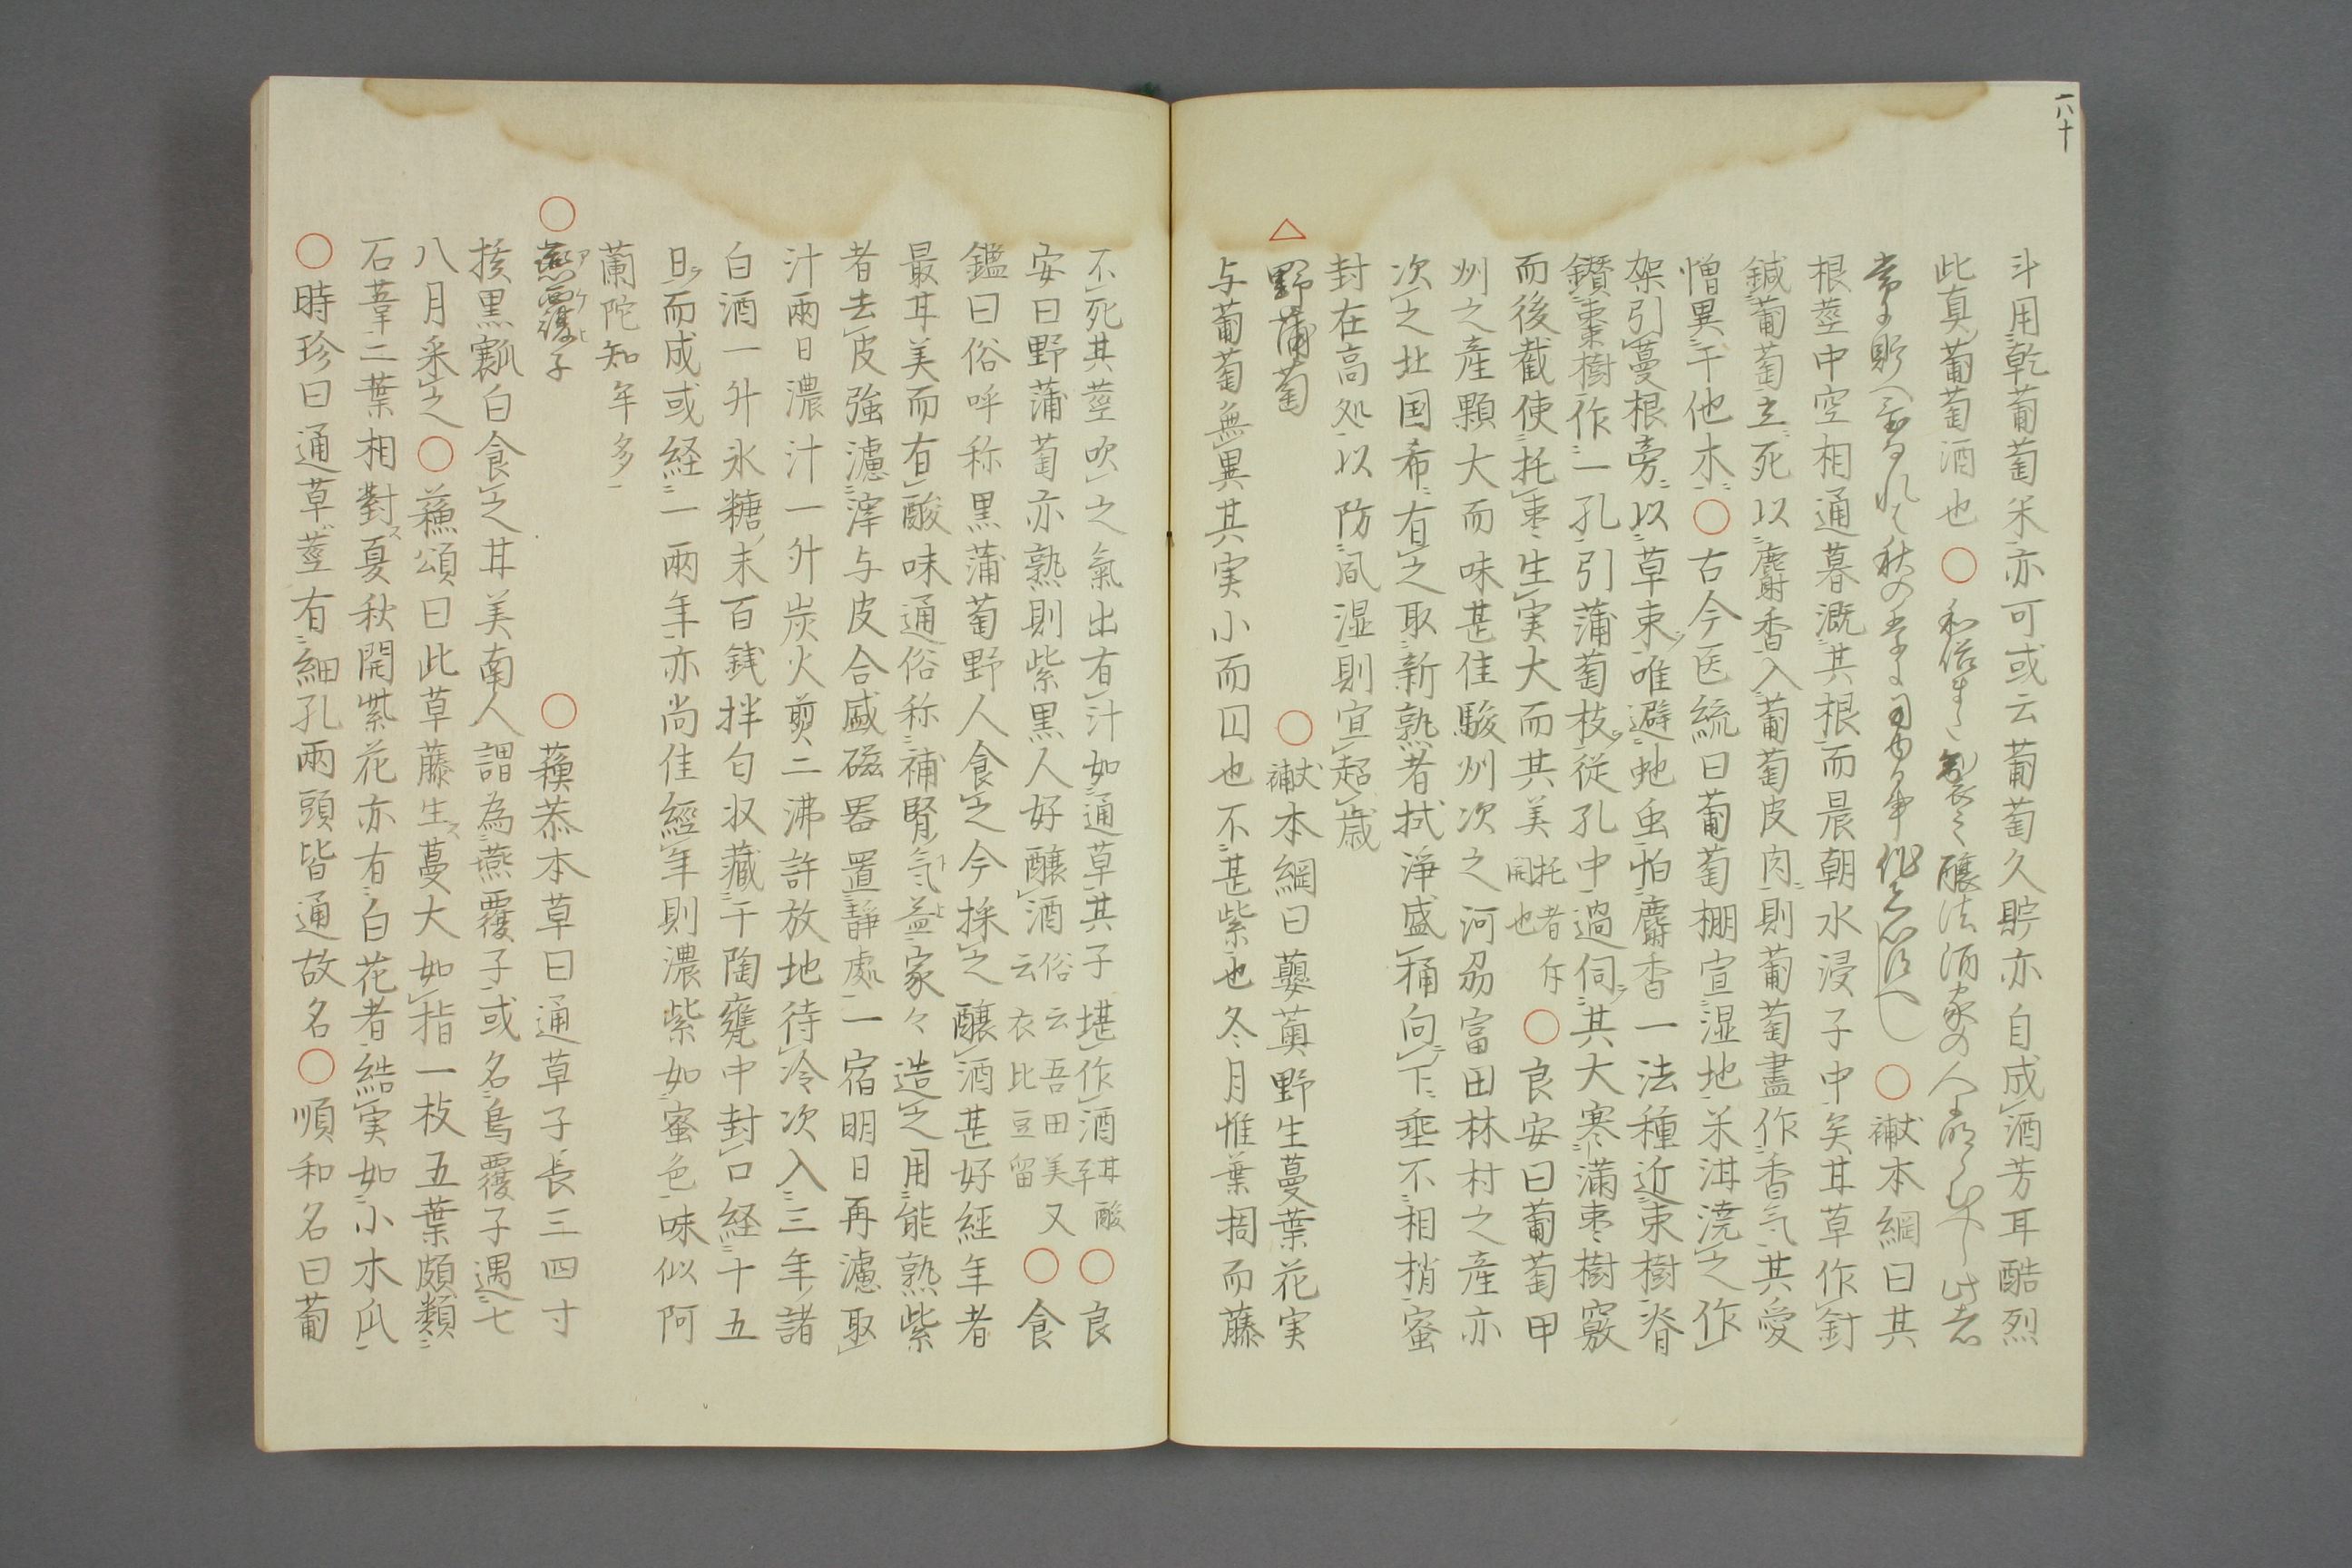 八十
斗用乾葡萄米亦可或云葡萄久貯亦自成酒芳耳酷烈
此真葡萄酒也○和俗 製之醸法酒家の人
常に貯へ 秋の ○補本綱曰其
根茎中空相通暮漑其根而晨朝水浸子中矣甘草作釘
鍼葡萄立死以麝香入葡萄皮肉則葡萄盡作香气其愛
憎異于他木○古今医統曰葡萄棚宣湿地米泔澆之作
架引蔓根旁以草束唯避虵虫怕麝香一法種近枣樹脊
鑚棗樹作一孔引蒲萄枝従孔中過伺其大寒満枣樹竅
而後截使托枣生実大而其美托者斥開也○良安曰葡萄甲
州之産顆大而味甚佳駿州次之河刕富田林村之産亦
次之北国希有之取新熟者拭浄盛桶向下垂不相梢蜜
封在高処以防凨湿則宣超歳
△野蒲萄 ○補本綱曰蘡薁野生蔓葉花実
与葡萄無異其実小而囗也不甚紫也冬月惟葉捐而藤
不死其茎吹之氣出有汁如通草其子堪作酒甘酸子○良
安曰野蒲萄亦熟則紫黒人好醸酒俗云吾田美又云衣比豆留○食
鑑曰俗呼称黒蒲萄野人食之今採之醸酒甚好經年者
最甘美而有酸味通俗称補腎气益家々造之用能熟紫
者去皮強濾滓与皮合盛磁器置靜處一宿明日再濾取
汁兩日濃汁一升炭火煎二沸許放地待冷次入三年諸
白酒一升氷糖末百銭拌匀収藏于陶甕中封口経十五
日而成或経一兩年亦尚佳經年則濃紫如蜜色味似阿
蘭陀知年多
○燕覆子アケヒ ○蘓恭本草曰通草子長三四寸
核黒瓤白食之甘美南人謂為燕覆子或名烏覆子遇七
八月采之○蘓頌曰此草藤生蔓大如指一枝五葉頗類
石葦二葉相對夏秋開紫花亦有白花者結実如小木瓜
○時珍曰通草茎有細孔兩頭皆通故名○順和名曰葡